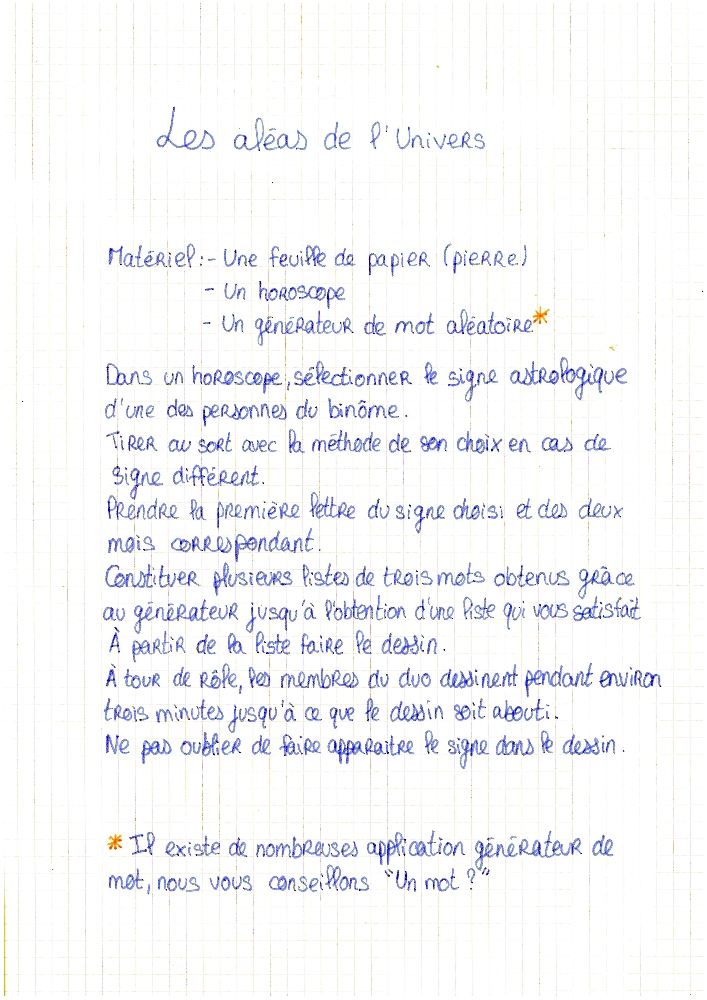 Les aléas de l'Univers
Matériel :- Une feuille de papier (pierre)
- Un horoscope
- Un générateur de mot aléatoire*
Dans un horoscope, sélectionner le signe astrologique
d'une des personnes du binôme.
Tirer au sort avec la méthode de son choix en cas de
signe différent.
Prendre la première lettre du signe choisi et des deux
mois correspondant.
Constituer plusieurs listes de trois mots obtenus grâce
au générateur jusqu'à l'obtention d'une liste qui vous satisfait
À partir de la liste faire le dessin.
À tour de rôle, les membres du duo dessinent pendant environ
trois minutes jusqu'à ce que le dessin soit abouti.
Ne pas oublier de faire apparaitre le signe dans le dessin.
* Il existe de nombreuses application générateur de
mot, nous vous conseillons "Un mot ?"